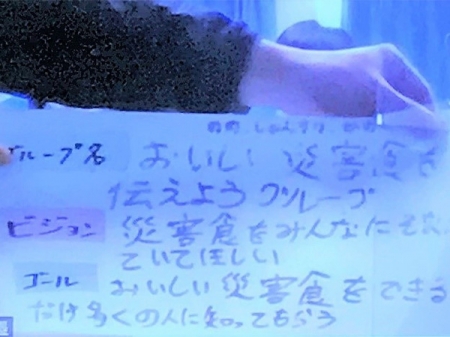 グループ名 おいしい災害食を
伝えようグループ
ビジョン 災害食をみんなに
ていてほしい
ゴール おいしい災害食をできる
だけ多くの人に知ってもらう